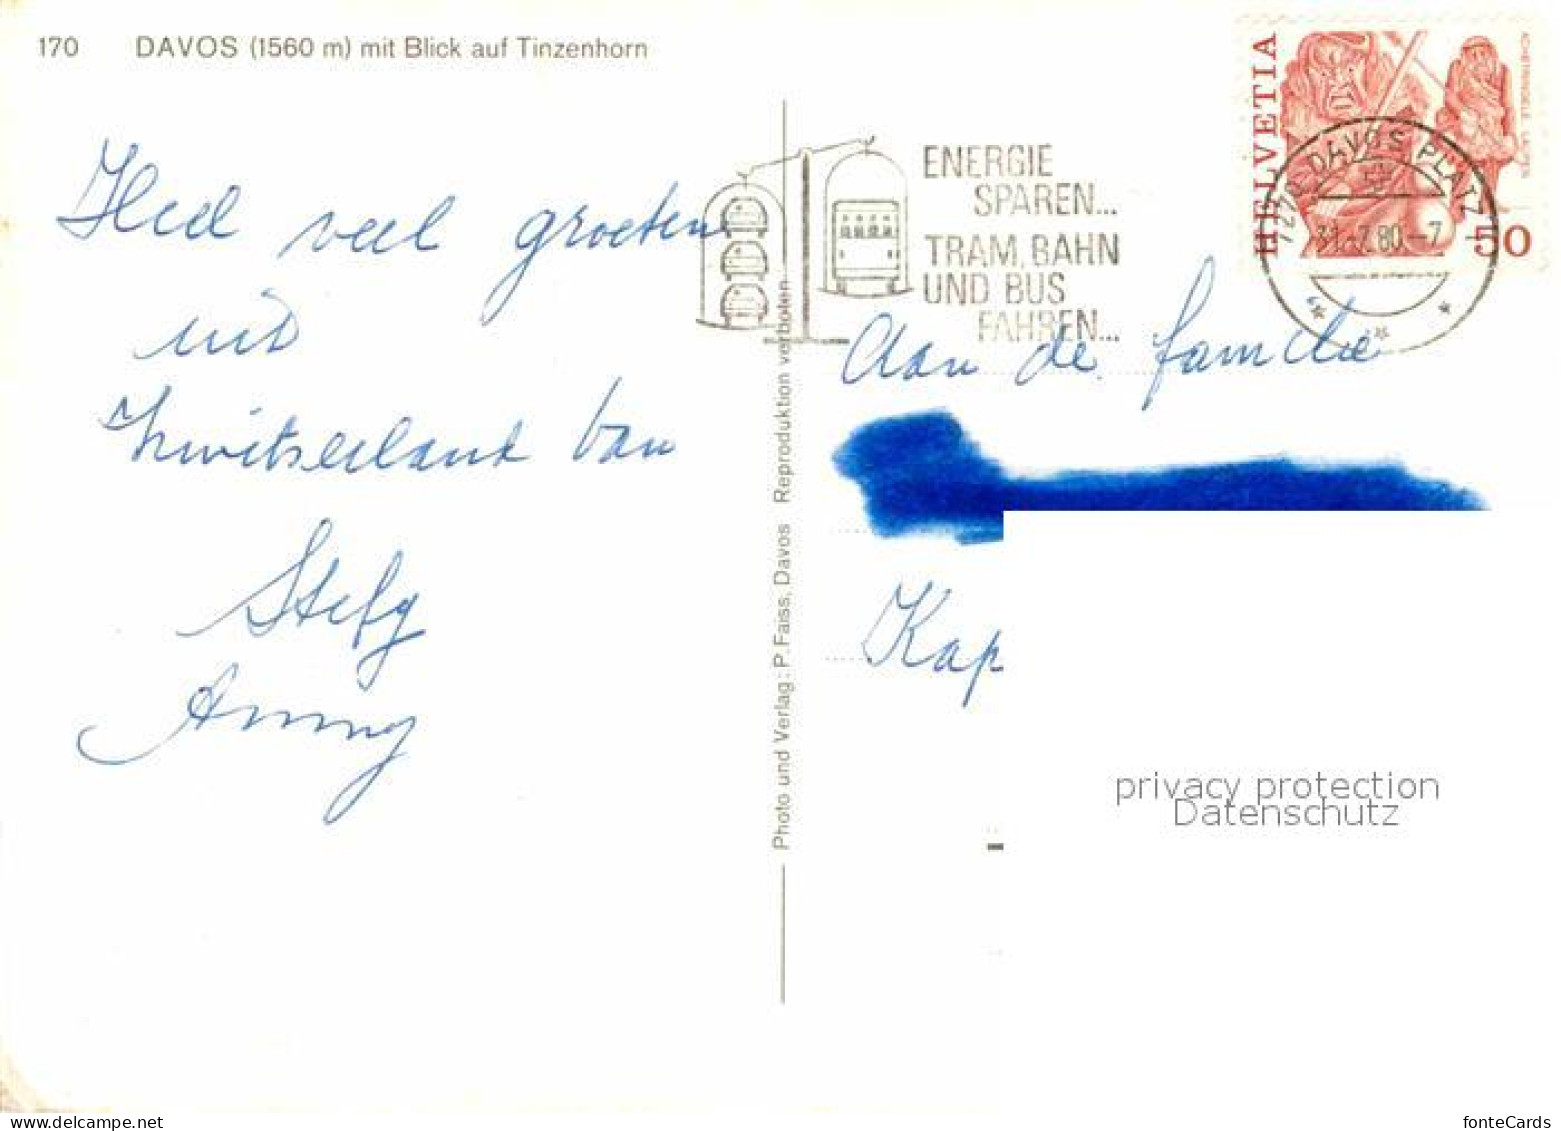 170 DAVOS (1560 m) mit Blick auf Tinzenhorn
Heel veel groeten
uit
Zwitserland van
Stefy
Anny
Photo und Verlag: P. Faiss, Davos Reproduktion verboten
ENERGIE
SPAREN...
TRAM, BAHN
UND BUS
FAHREN...
HELVETIA
50
7270 DAVOS PLATZ 1
31.-7.80.-7
Aan de familie
Kap
privacy protection
Datenschutz
www.delcampe.net
fonteCards